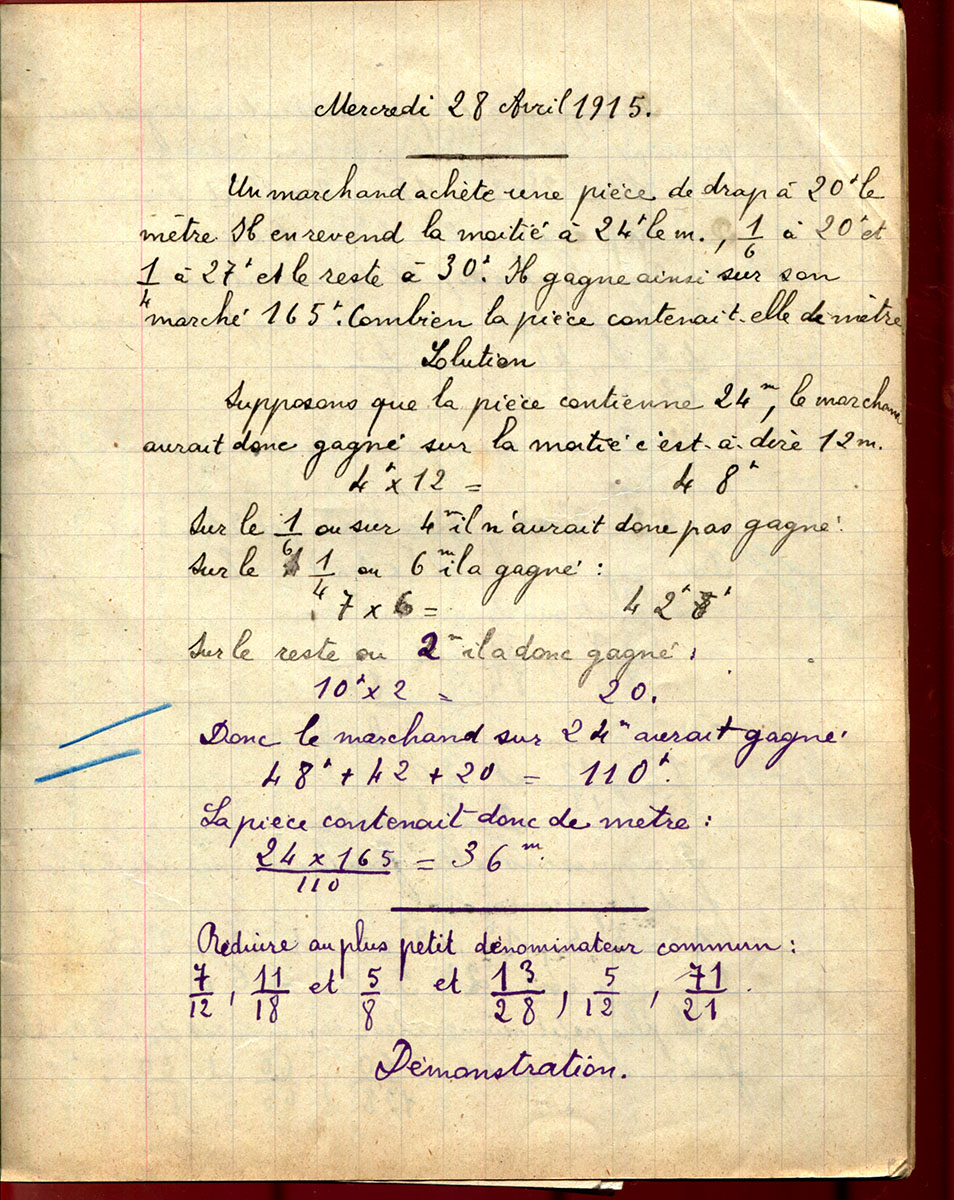 Mercredi 28 Avril 1915.
Un marchand achète une pièce de drap à 20ᶠ le
mètre Il en revend la moitié à 24ᶠ le m., 1/6 à 20ᶠ et
1/4 à 27ᶠ et le reste à 30ᶠ. Il gagne ainsi sur son
marché 165ᶠ. Combien la pièce contenait-elle de mètre
Solution
Supposons que la pièce contienne 24ᵐ, le marchand
aurait donc gagné sur la moitié c'est-à-dire 12m.
4ᶠ x 12 = 48ᶠ
Sur le 1/6 ou sur 4ᵐ il n'aurait donc pas gagné.
Sur le 1/4 ou 6ᵐ il a gagné :
7 x 6 = 42ᶠ
Sur le reste ou 2ᵐ il a donc gagné :
10ᶠ x 2 = 20.
Donc le marchand sur 24ᵐ aurait gagné
48ᶠ + 42 + 20 = 110ᶠ.
La pièce contenait donc de mètre :
24 x 165 / 110 = 36ᵐ.
Réduire au plus petit dénominateur commun :
7/12, 11/18 et 5/8 et 13/28, 5/12, 71/21.
Démonstration.